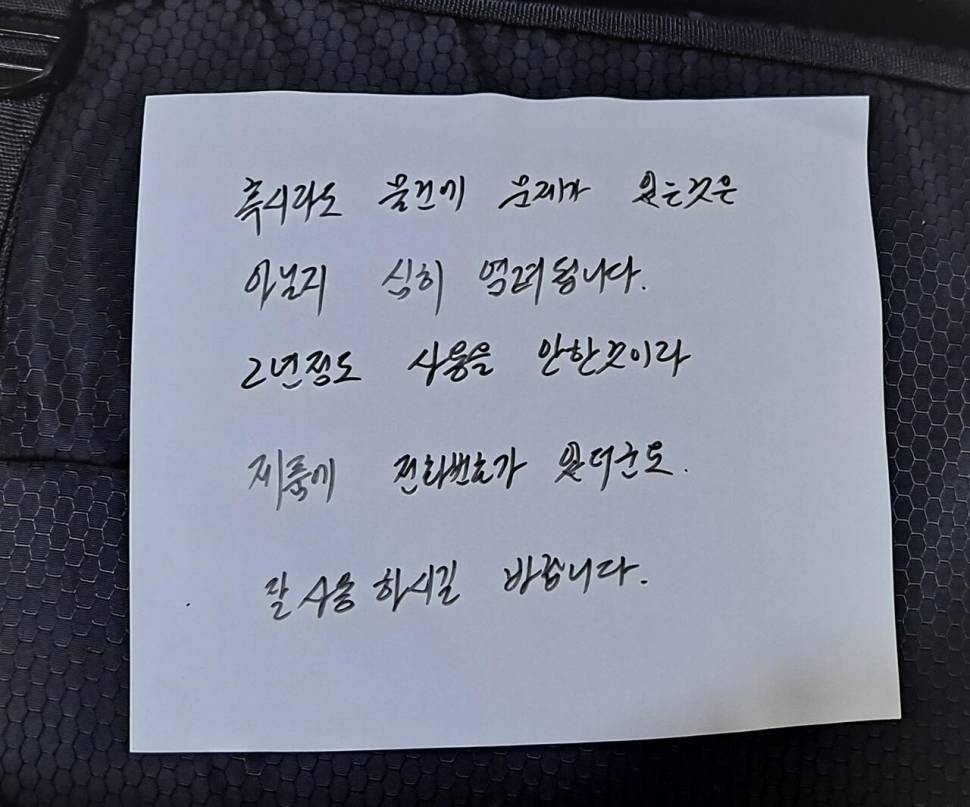 혹시라도 물건에 문제가 있는것은
아닌지 심히 염려됩니다.
2년정도 사용을 안한것이라
제품에 전화번호가 있더군요.
잘 사용하시길 바랍니다.